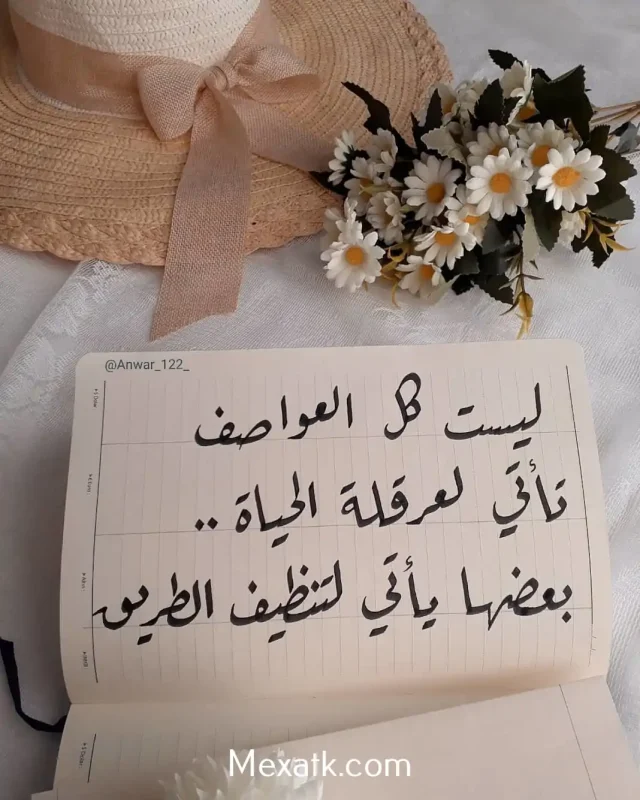 @Anwar_122_
ليست كل العواصف
تأتي لعرقلة الحياة ..
بعضها يأتي لتنظيف الطريق
Mexatk.com